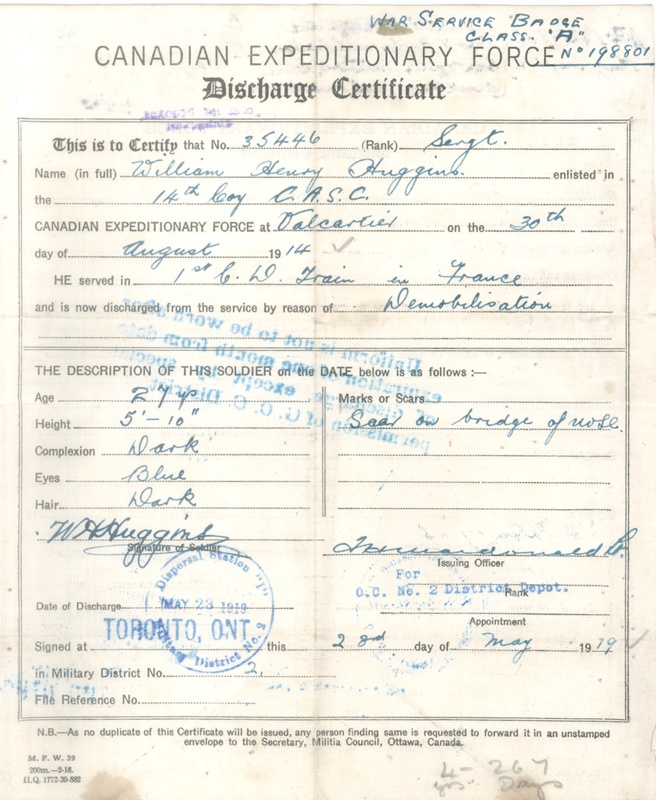 WAR SERVICE BADGE
CLASS "A"
CANADIAN EXPEDITIONARY FORCE No 198801
Discharge Certificate
This is to Certify that No. 35446 (Rank) Sergt.
Name (in full) William Henry Huggins. enlisted in
the 14th Coy C.A.S.C.
CANADIAN EXPEDITIONARY FORCE at Valcartier on the 30th
day of August 1914
HE served in 1st C. D. Train in France
and is now discharged from the service by reason of Demobilisation
Uniform is not to be worn after
expiration of one month from date
of discharge, except by special
permission of G. O. C. District.
THE DESCRIPTION OF THIS SOLDIER on the DATE below is as follows :—
Age 27 yrs
Marks or Scars
Height 5'-10"
Scar on bridge of nose.
Complexion Dark
Eyes Blue
Hair Dark
W H Huggins
Signature of Soldier
Issuing Officer
For
O.C. No. 2 District Depot.
Rank
Appointment
Dispersal Station "I"
Date of Discharge MAY 23 1919
TORONTO, ONT.
Military District No. 2
Signed at this 23rd day of May 1919
in Military District No. 2.
File Reference No.
N.B.—As no duplicate of this Certificate will be issued, any person finding same is requested to forward it in an unstamped
envelope to the Secretary, Militia Council, Ottawa, Canada.
M. F. W. 39
200m.—2-18.
H.Q. 1772-39-882
4 - 267
yrs Days